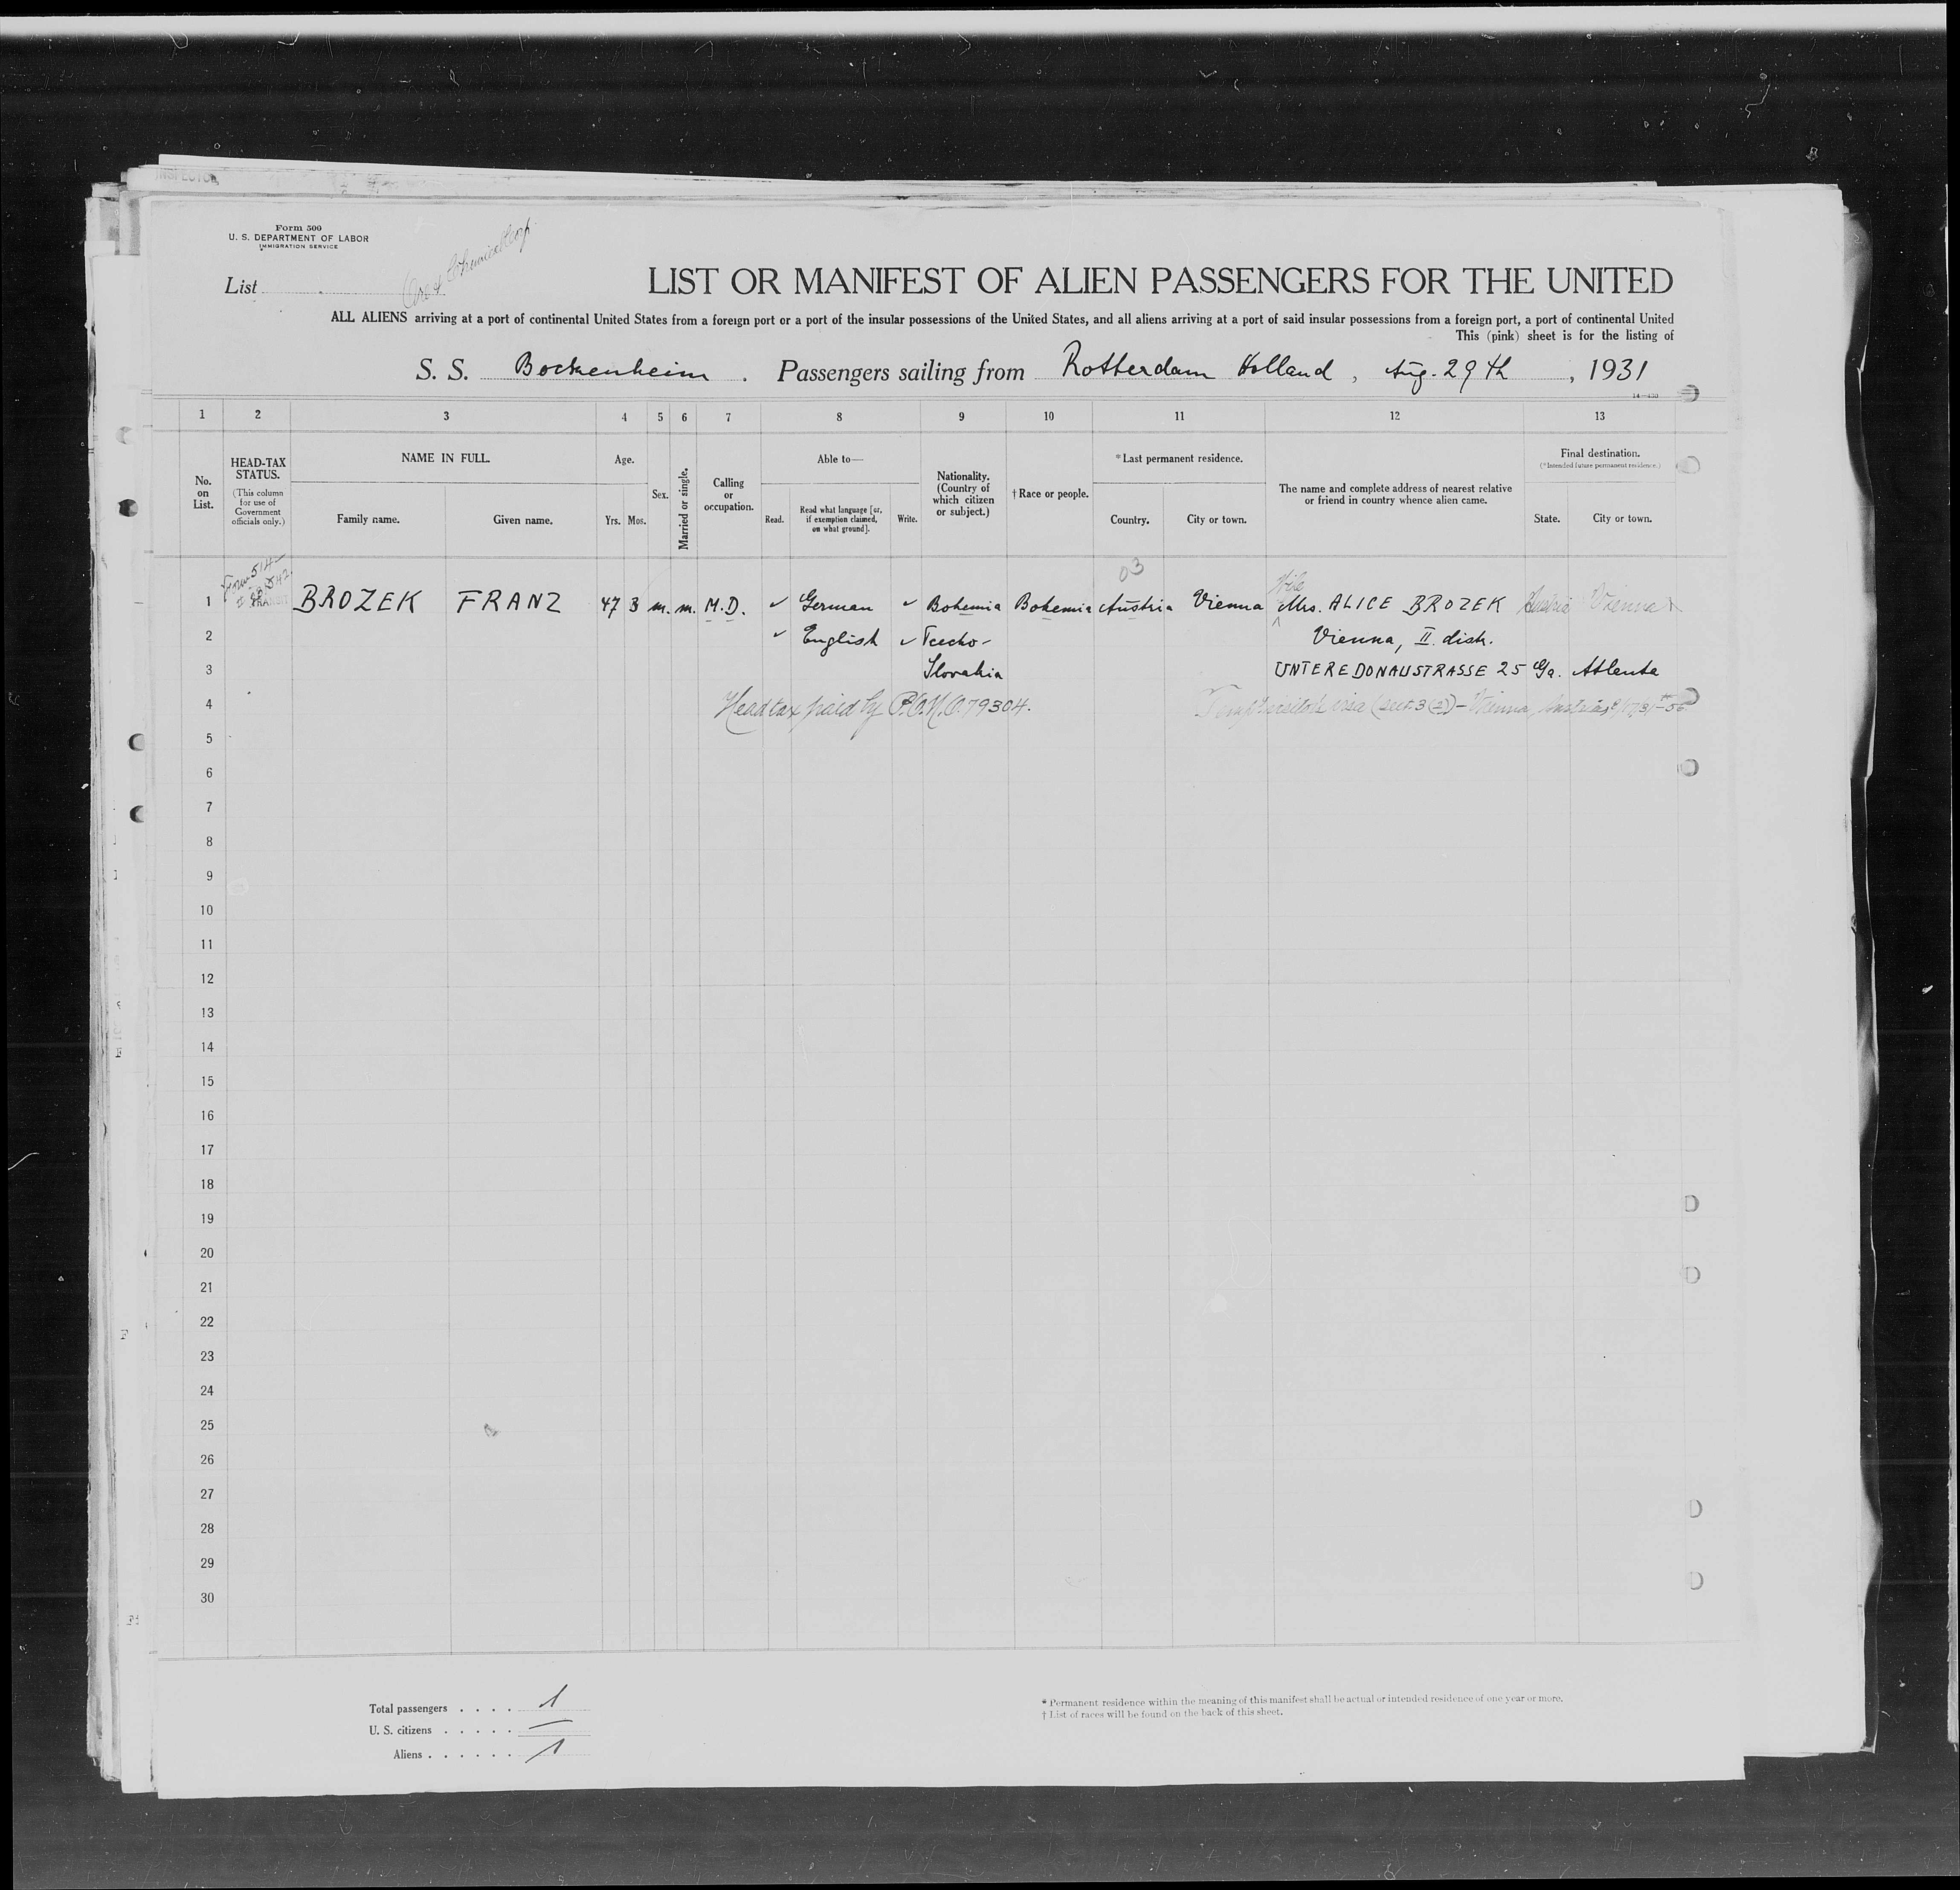 Form 500
U. S. DEPARTMENT OF LABOR
IMMIGRATION SERVICE
List
LIST OR MANIFEST OF ALIEN PASSENGERS FOR THE UNITED
ALL ALIENS arriving at a port of continental United States from a foreign port or a port of the insular possessions of the United States, and all aliens arriving at a port of said insular possessions from a foreign port, a port of continental United
This (pink) sheet is for the listing of
S. S. Bockenheim . Passengers sailing from Rotterdam Holland , Aug. 29th , 1931
1 2 3 4 5 6 7 8 9 10 11 12 13
No. on List.
HEAD-TAX STATUS.
(This column for use of Government officials only.)
NAME IN FULL.
Family name. Given name.
Age.
Yrs. Mos.
Sex.
Married or single.
Calling or occupation.
Able to—
Read. Read what language [or, if exemption claimed, on what ground]. Write.
Nationality. (Country of which citizen or subject.)
† Race or people.
*Last permanent residence.
Country. City or town.
The name and complete address of nearest relative or friend in country whence alien came.
Final destination.
(*Intended future permanent residence.)
State. City or town.
03
1 BROZEK FRANZ 47 3 m. m. M.D. ✓ German ✓ Bohemia Bohemia Austria Vienna Mrs. ALICE BROZEK Austria Vienna
2 ✓ English ✓ Tcecho- Vienna, II. distr.
3 Slovakia UNTERE DONAUSTRASSE 25 Ga. Atlanta
4 Head tax paid by P.O.M.O. 79304. visa (sec. 3(2)) - Vienna, Austria
5
6
7
8
9
10
11
12
13
14
15
16
17
18
19
20
21
22
23
24
25
26
27
28
29
30
Total passengers . . . . 1
U. S. citizens . . . . . —
Aliens . . . . . . 1
* Permanent residence within the meaning of this manifest shall be actual or intended residence of one year or more.
† List of races will be found on the back of this sheet.